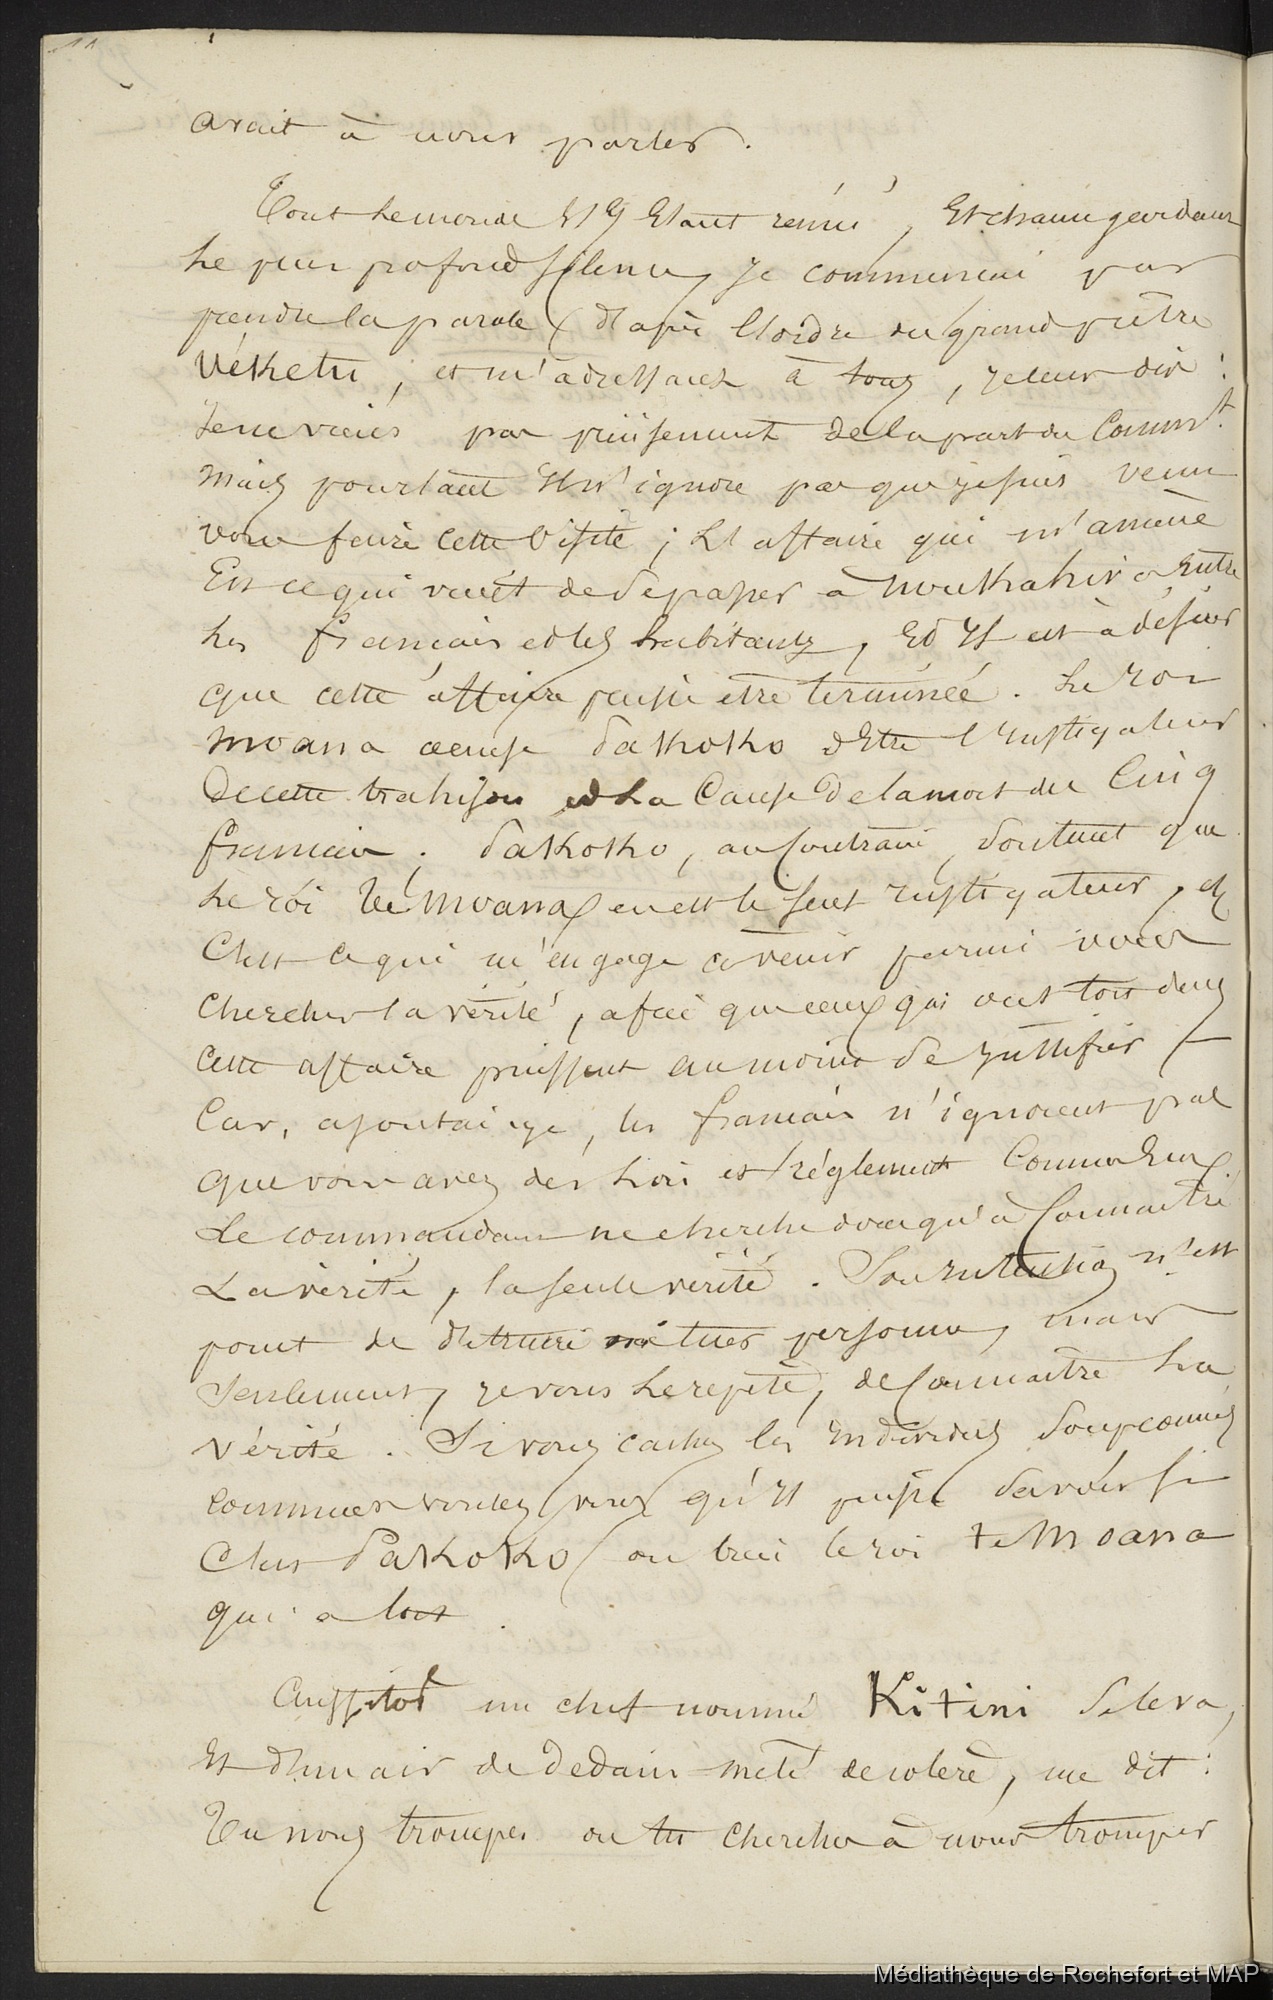 avait à nous parler.
Tout le monde Etant réuni, Et chacun gardant
Le plus profond silence, je commencai par
prendre la parole d'après L'ordre du grand prêtre
Véketu, et m'adressant à tous, je leur dis :
Je ne viens pas précisement de la part du Commt.
Mais pourtant Il n'ignore pas que je suis venu
vous faire cette visite ; L'affaire qui m'amène
Est ce qui vient de se passer à Noukahiva Entre
Les francais et les habitants, Et Il est à désirer
que cette affaire puisse etre terminée. Le roi
Moana accuse Pakoko d'Etre l'Instigateur
De cette trahison et La Cause De la mort des Cinq
francais. Pakoko, au Contraire, soutient que
Le roi Te Moana en est le seul Instigateur, et
C'est ce qui m'engage a venir parmi vous
chercher la vérité, afin que ceux qui ont tort dans
cette affaire puissent au moins se justifier
Car, ajoutai-je, les francais n'ignorent pas
que vous avez des Lois et réglements Comme Eux.
Le commandant ne cherche donc qu'à Connaitre
La vérité, la seule vérité. Son Intention n'est
point de détruire ni tuer personne, mais
seulement, je vous Le repète, de Connaitre La
vérité. Si vous cachez les Individus soupçonnés
comment voulez vous qu'Il puisse savoir si
C'est Pakoko ou bien le roi te Moana
qui a tort.
Aussitot un chef nommé Kitini se leva,
Et D'un air de Dedain mêlé de colère, me dit :
Tu nous trompes ou tu cherches à nous tromper
Médiathèque de Rochefort et MAP